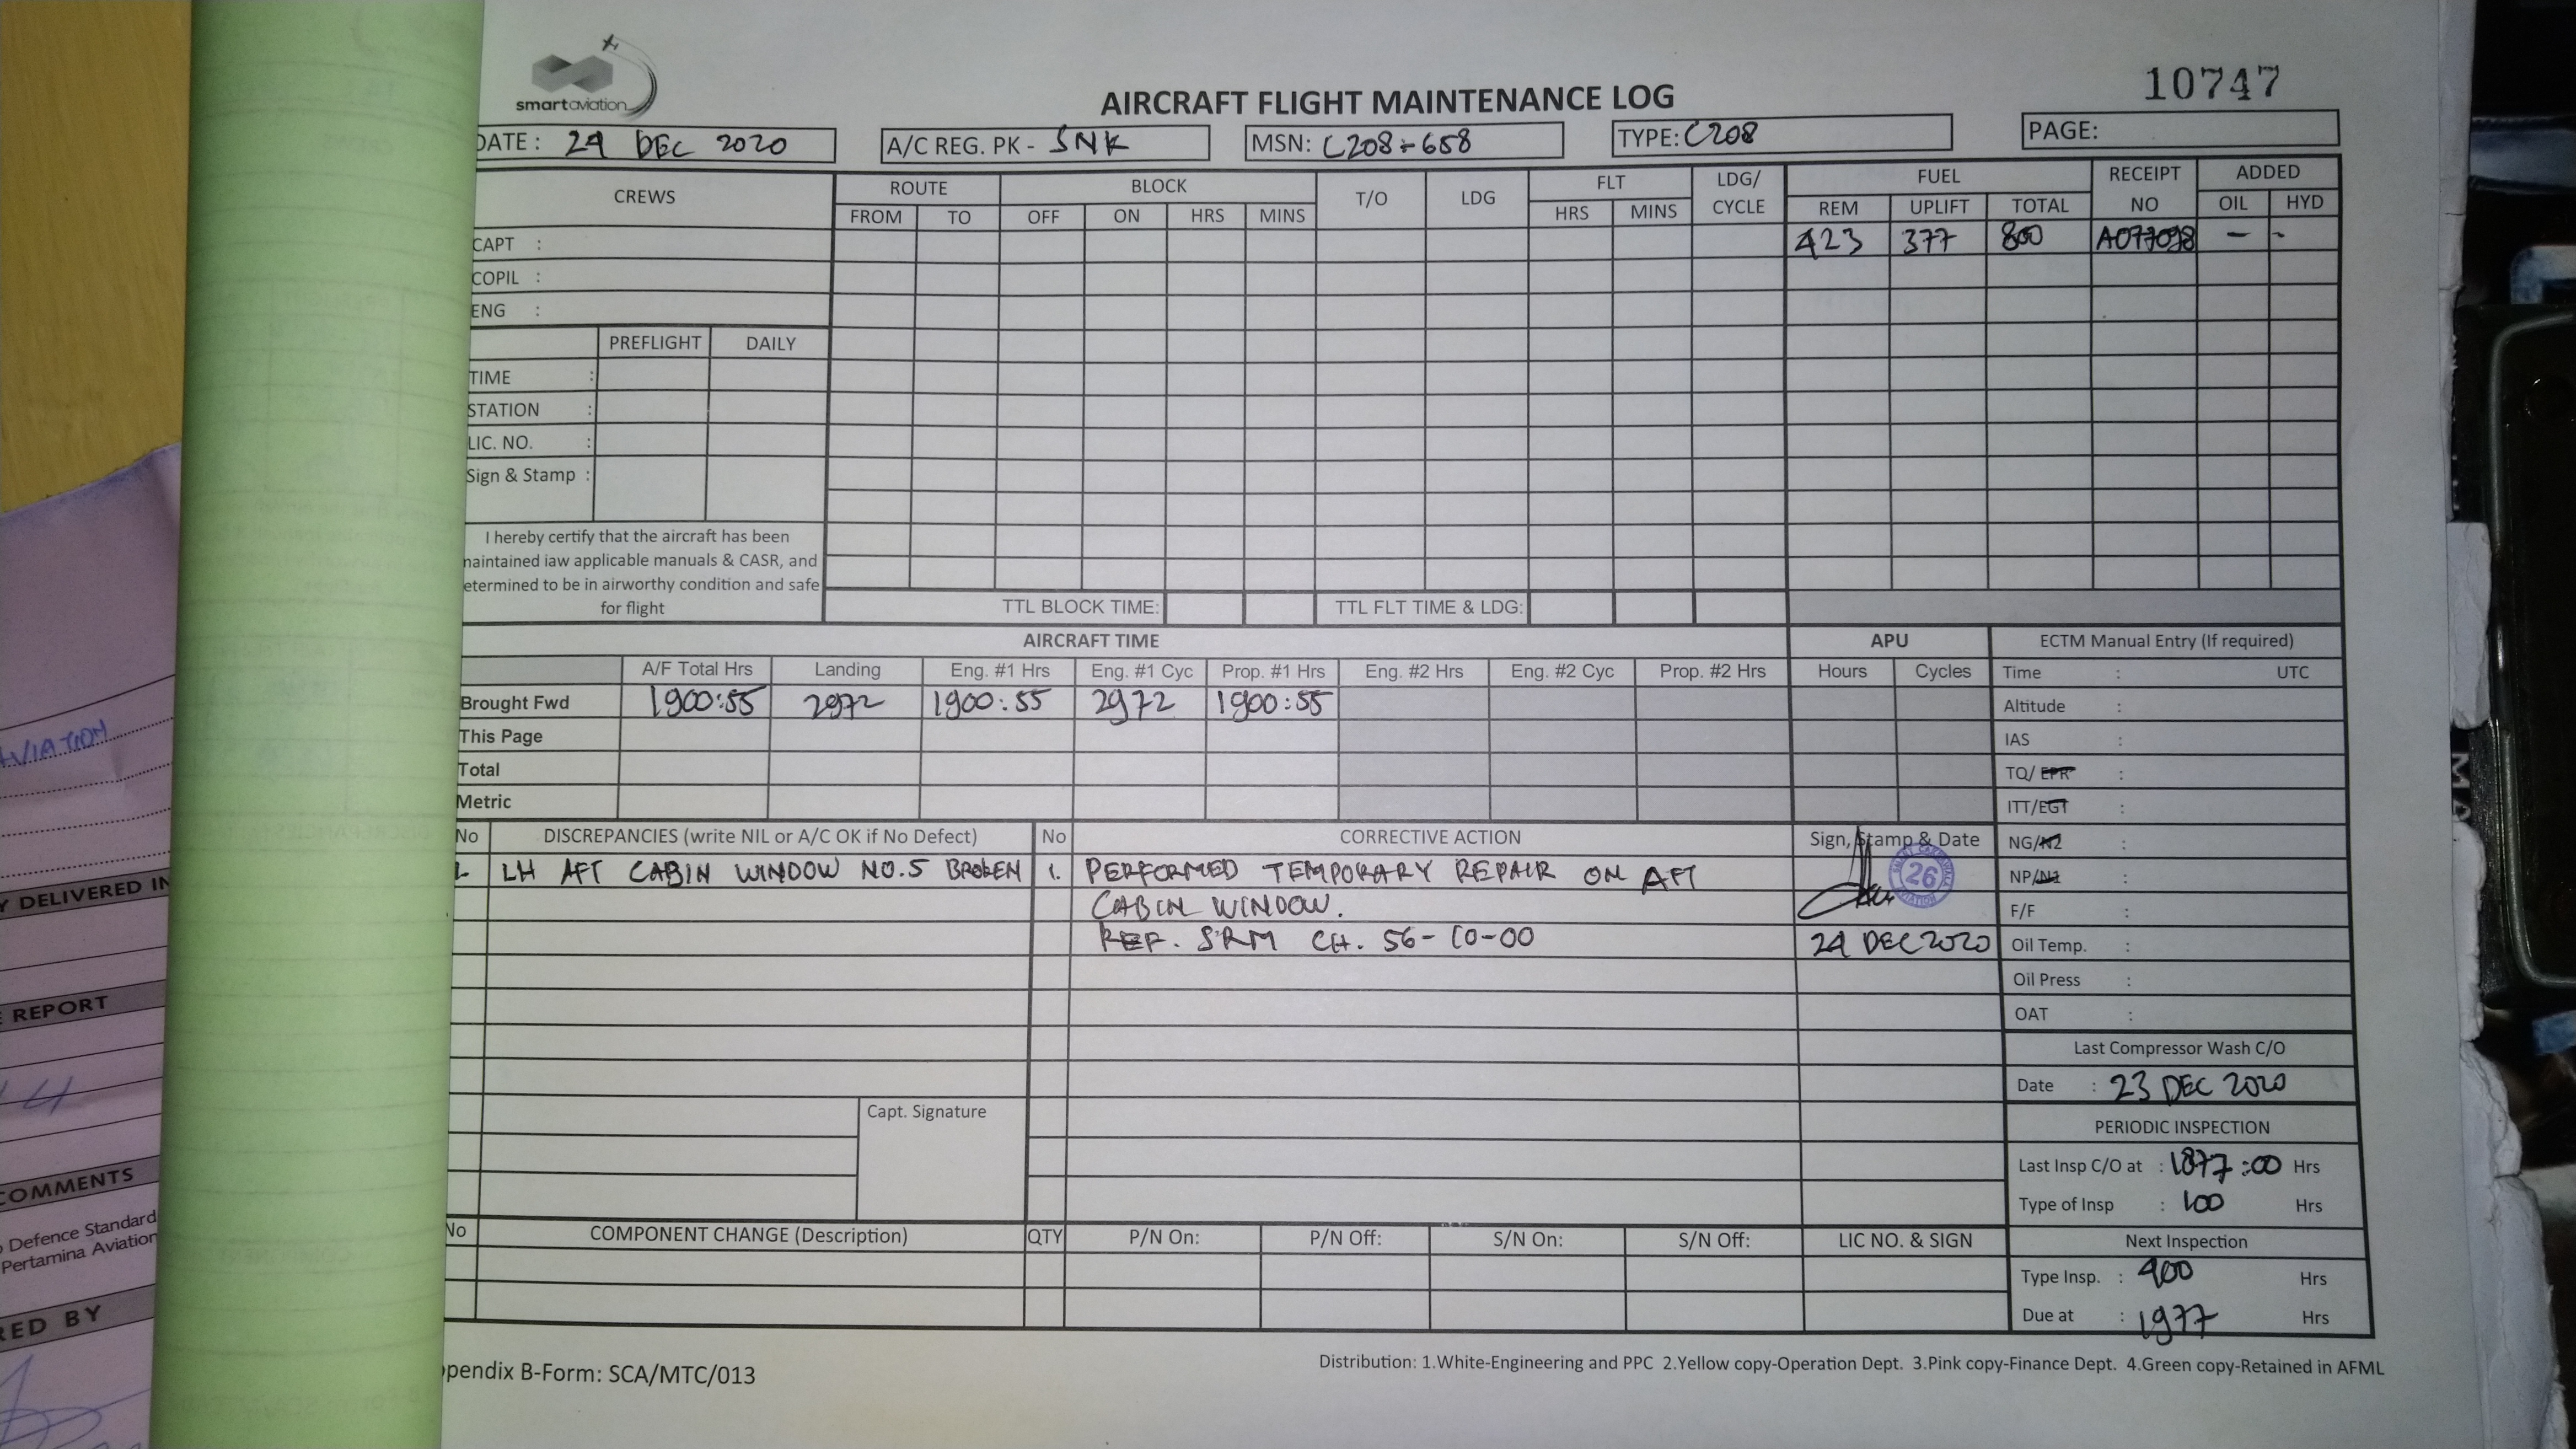 smartaviation
AIRCRAFT FLIGHT MAINTENANCE LOG
10747
DATE : 24 DEC 2020
A/C REG. PK - SNK
MSN: C208-658
TYPE: C208
PAGE:
CREWS ROUTE BLOCK T/O LDG FLT LDG/ CYCLE FUEL RECEIPT NO ADDED
FROM TO OFF ON HRS MINS HRS MINS REM UPLIFT TOTAL OIL HYD
CAPT : 423 377 800 A077098 - -
COPIL :
ENG :
PREFLIGHT DAILY
TIME :
STATION :
LIC. NO. :
Sign & Stamp :
I hereby certify that the aircraft has been
naintained iaw applicable manuals & CASR, and
etermined to be in airworthy condition and safe
for flight
TTL BLOCK TIME: TTL FLT TIME & LDG:
AIRCRAFT TIME APU ECTM Manual Entry (If required)
A/F Total Hrs Landing Eng. #1 Hrs Eng. #1 Cyc Prop. #1 Hrs Eng. #2 Hrs Eng. #2 Cyc Prop. #2 Hrs Hours Cycles Time : UTC
Brought Fwd 1900:55 2972 1900:55 2972 1900:55 Altitude :
This Page IAS :
Total TQ/EPR :
Metric ITT/EGT :
No DISCREPANCIES (write NIL or A/C OK if No Defect) No CORRECTIVE ACTION Sign, Stamp & Date NG/N2 :
1. LH AFT CABIN WINDOW NO.5 BROKEN 1. PERFORMED TEMPORARY REPAIR ON AFT 26 NP/N1 :
CABIN WINDOW. F/F :
REF. SRM CH. 56-10-00 24 DEC 2020 Oil Temp. :
Oil Press :
OAT :
Last Compressor Wash C/O
Date : 23 DEC 2020
Capt. Signature
PERIODIC INSPECTION
Last Insp C/O at : 1877:00 Hrs
Type of Insp : 100 Hrs
No COMPONENT CHANGE (Description) QTY P/N On: P/N Off: S/N On: S/N Off: LIC NO. & SIGN Next Inspection
Type Insp. : 400 Hrs
Due at : 1977 Hrs
pendix B-Form: SCA/MTC/013
Distribution: 1.White-Engineering and PPC 2.Yellow copy-Operation Dept. 3.Pink copy-Finance Dept. 4.Green copy-Retained in AFML
AVIATION
Y DELIVERED IN
REPORT
COMMENTS
Defence Standard
Pertamina Aviation
RED BY